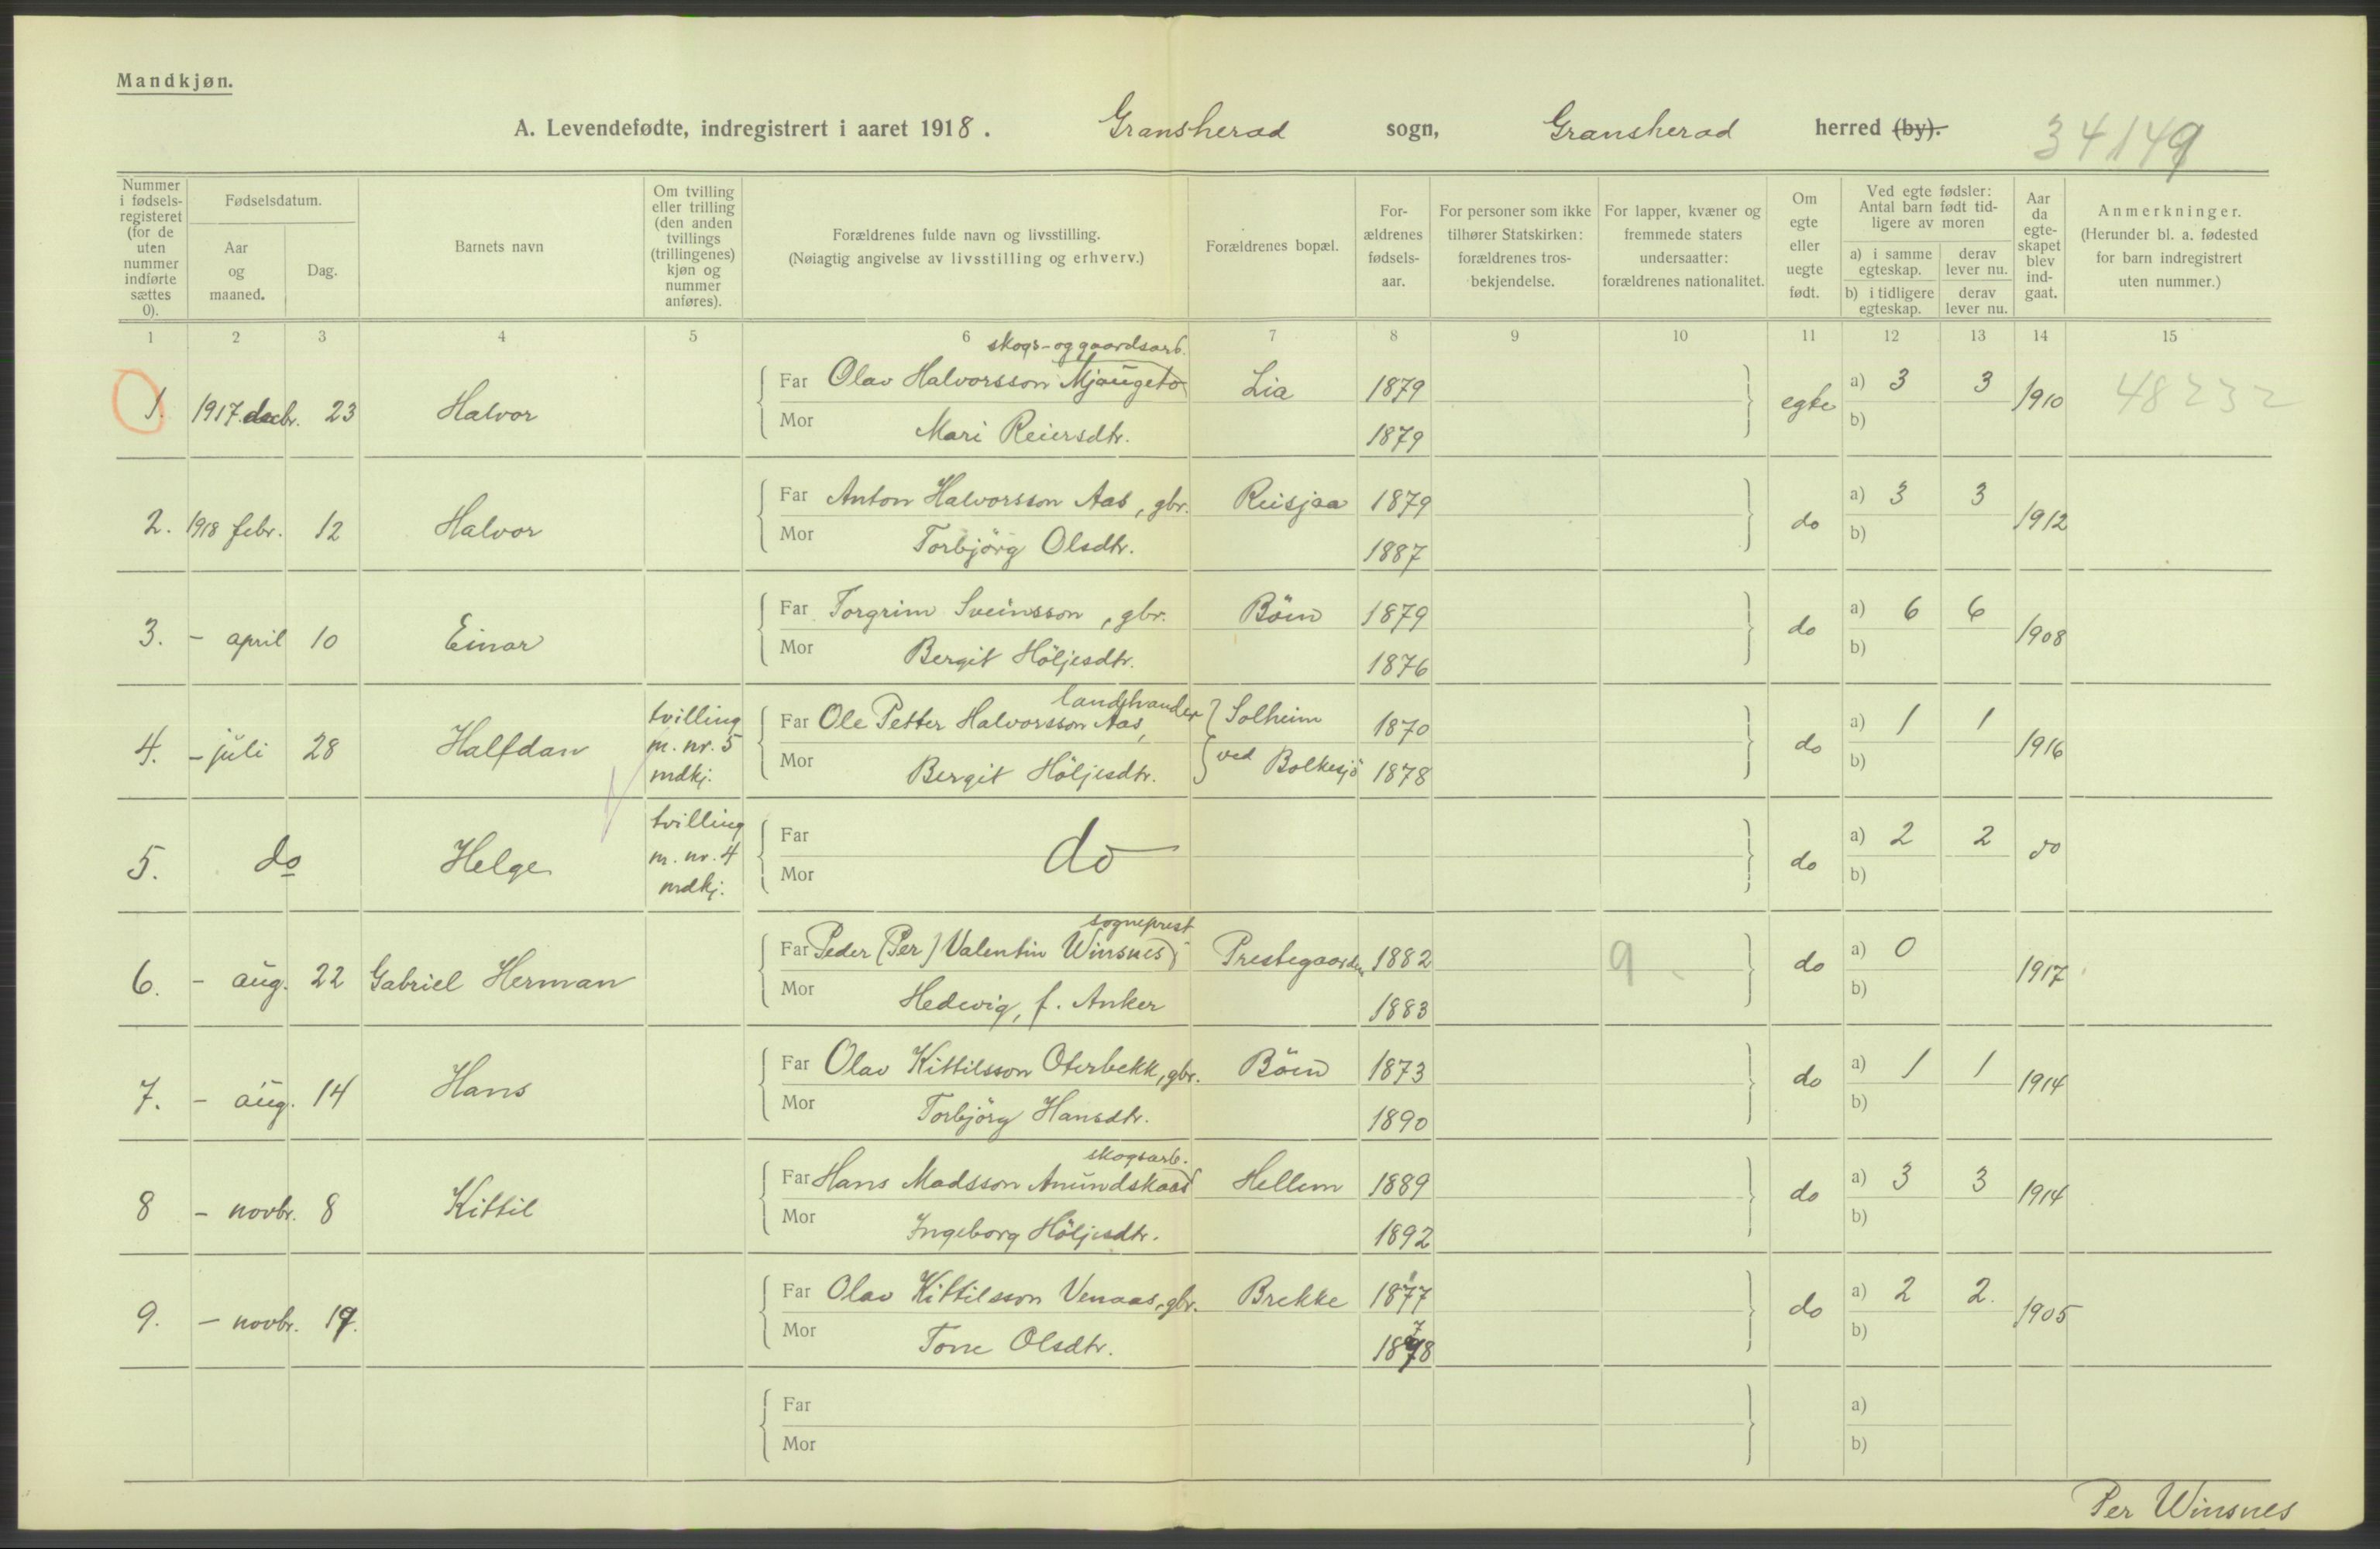 Mandkjøn.
A. Levendefødte, indregistrert i aaret 1918. Gransherad sogn, Gransherad herred (by). 34149
Nummer i fødsels-registeret (for de uten nummer indførte sættes 0).
Fødselsdatum.
Aar og maaned.
Dag.
Barnets navn
Om tvilling eller trilling (den anden tvillings (trillingenes) kjøn og nummer anføres).
Forældrenes fulde navn og livsstilling.
(Nøiagtig angivelse av livsstilling og erhverv.)
Forældrenes bopæl.
For-ældrenes fødsels-aar.
For personer som ikke tilhører Statskirken: forældrenes tros-bekjendelse.
For lapper, kvæner og fremmede staters undersaatter: forældrenes nationalitet.
Om egte eller uegte født.
Ved egte fødsler: Antal barn født tid-ligere av moren
a) i samme egteskap. derav lever nu.
b) i tidligere egteskap. derav lever nu.
Aar da egte-skapet blev ind-gaat.
Anmerkninger.
(Herunder bl. a. fødested for barn indregistrert uten nummer.)
1 2 3 4 5 6 7 8 9 10 11 12 13 14 15
skogs- og gaardsarb.
1. 1917 decbr. 23 Halvor Far Olav Halvorsson Mjaugeto Lia 1879 egte a) 3 3 1910 48232
Mor Mari Reiersdtr. 1879 b)
2. 1918 febr. 12 Halvor Far Anton Halvorsson Aas, gbr. Reisjaa 1879 do a) 3 3 1912
Mor Torbjörg Olsdtr. 1887 b)
3. – april 10 Einar Far Torgrim Sveinsson, gbr. Böen 1879 do a) 6 6 1908
Mor Bergit Höljesdtr. 1876 b)
landhandler
4. – juli 28 Halfdan tvilling m. nr. 5 mdkj. Far Ole Petter Halvorsson Aas, Solheim 1870 do a) 1 1 1916
Mor Bergit Höljesdtr. ved Bolkesjö 1878 b)
5. do Helge tvilling m. nr. 4 mdkj. Far do do a) 2 2 do
Mor b)
sogneprest
6. – aug. 22 Gabriel Herman Far Peder (Per) Valentin Winsnes Prestegaarden 1882 9 do a) 0 1917
Mor Hedevig, f. Anker 1883 b)
7. – aug. 14 Hans Far Olav Kittilsson Oterbekk, gbr. Böen 1873 do a) 1 1 1914
Mor Torbjörg Hansdtr. 1890 b)
skogsarb.
8 – novbr. 8 Kittil Far Hans Madsson Anundskaas Hellem 1889 do a) 3 3 1914
Mor Ingeborg Höljesdtr. 1892 b)
9. – novbr. 19. Far Olav Kittilsson Venaas, gbr. Brekke 1877 do a) 2 2. 1905
Mor Tone Olsdtr. 1878 b)
Far a)
Mor b)
Per Winsnes